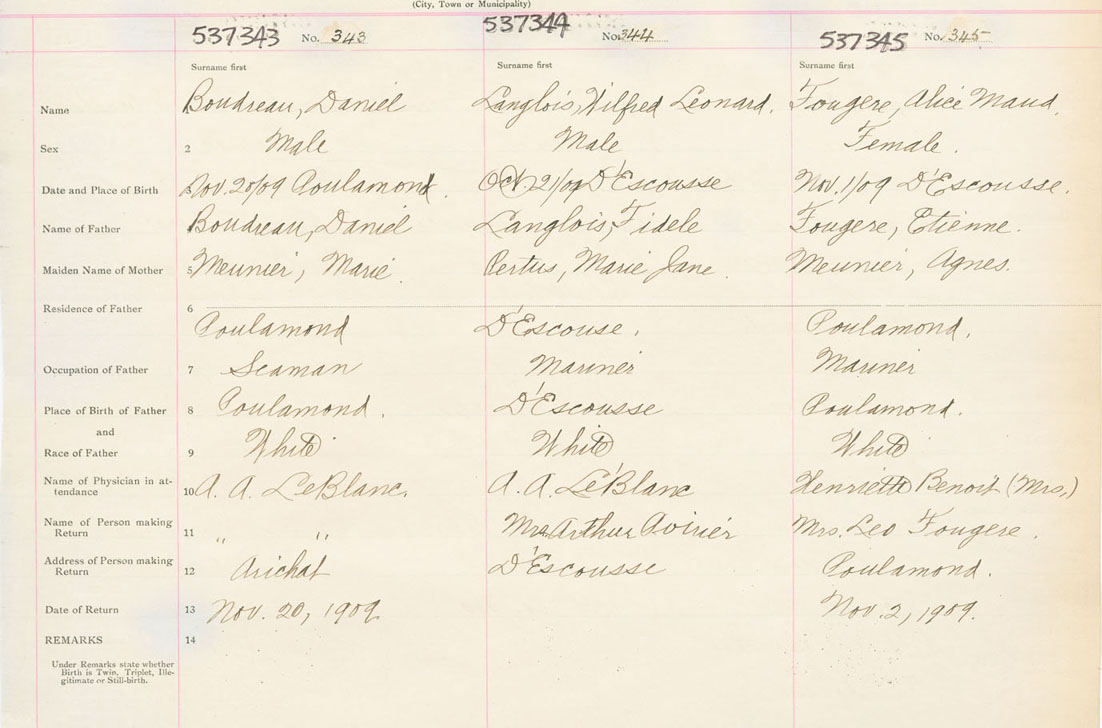 (City, Town or Municipality)
537343 No. 343 537344 No. 344 537345 No. 345
Surname first Surname first Surname first
Name 1 Boudreau, Daniel Langlois, Wilfred Leonard. Fougere, Alice Maud.
Sex 2 Male Male Female.
Date and Place of Birth 3 Nov. 20/09 Poulamond. Oct. 21/09 D'Escousse Nov. 1/09 D'Escousse.
Name of Father 4 Boudreau, Daniel Langlois, Fidele Fougere, Etienne.
Maiden Name of Mother 5 Meunier, Marie. Pertus, Marie Jane. Meunier, Agnes.
Residence of Father 6
Poulamond D'Escouse. Poulamond.
Occupation of Father 7 Seaman Mariner Mariner
Place of Birth of Father 8 Poulamond. D'Escousse Poulamond.
and
Race of Father 9 White White White
Name of Physician in at-
tendance 10 A. A. LeBlanc. A. A. LeBlanc Henriette Benoit (Mrs.)
Name of Person making
Return 11 " " Mrs Arthur Poirier Mrs. Leo Fougere.
Address of Person making
Return 12 Arichat D'Escousse Poulamond.
Date of Return 13 Nov. 20, 1909. Nov. 2, 1909.
REMARKS 14
Under Remarks state whether
Birth is Twin, Triplet, Ille-
gitimate or Still-birth.